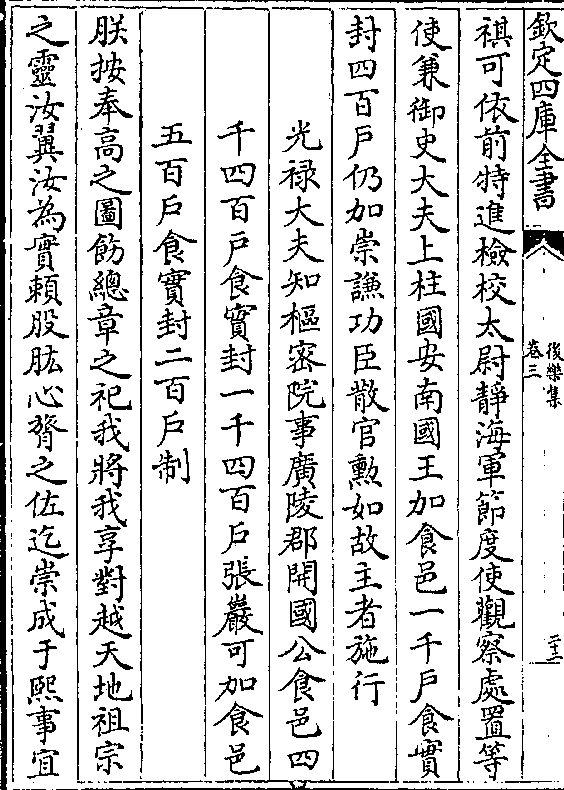 欽定四庫全書
後樂集
卷三
二十二
祺可依前特進檢校太尉靜海軍節度使觀察處置等
使兼御史大夫上柱國安南國王加食邑一千戶食實
封四百戶仍加崇謙功臣散官勳如故主者施行
光禄大夫知樞密院事廣陵郡開國公食邑四
千四百戶食實封一千四百戶張巖可加食邑
五百戶食實封二百戶制
朕按奉高之圖飭總章之祀我將我享對越天地祖宗
之靈汝翼汝為實頼股肱心膂之佐迄崇成于熙事宜